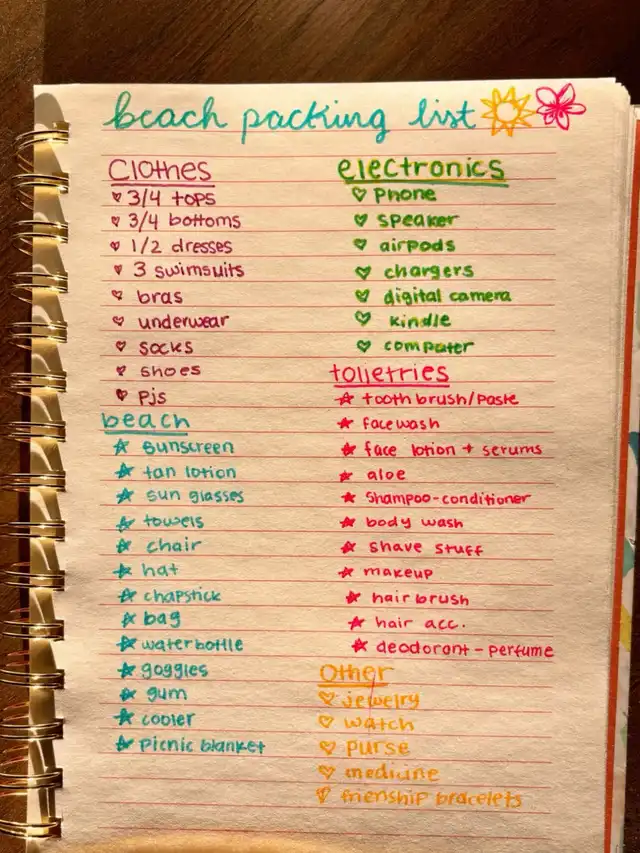 beach packing list
Clothes
3/4 tops
3/4 bottoms
1/2 dresses
3 swimsuits
bras
underwear
socks
shoes
pjs
beach
sunscreen
tan lotion
sun glasses
towels
chair
hat
chapstick
bag
waterbottle
goggles
gum
cooler
picnic blanket
electronics
phone
speaker
airpods
chargers
digital camera
kindle
computer
toiletries
toothbrush/paste
facewash
face lotion + serums
aloe
shampoo-conditioner
body wash
shave stuff
makeup
hairbrush
hair acc.
deodorant - perfume
Other
jewelry
watch
purse
medicine
frienship bracelets